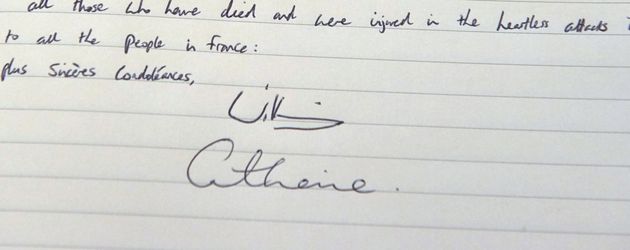 all those who have died and were injured in the heartless attacks
to all the People in France:
plus Sincères Condoléances,
Catherine.